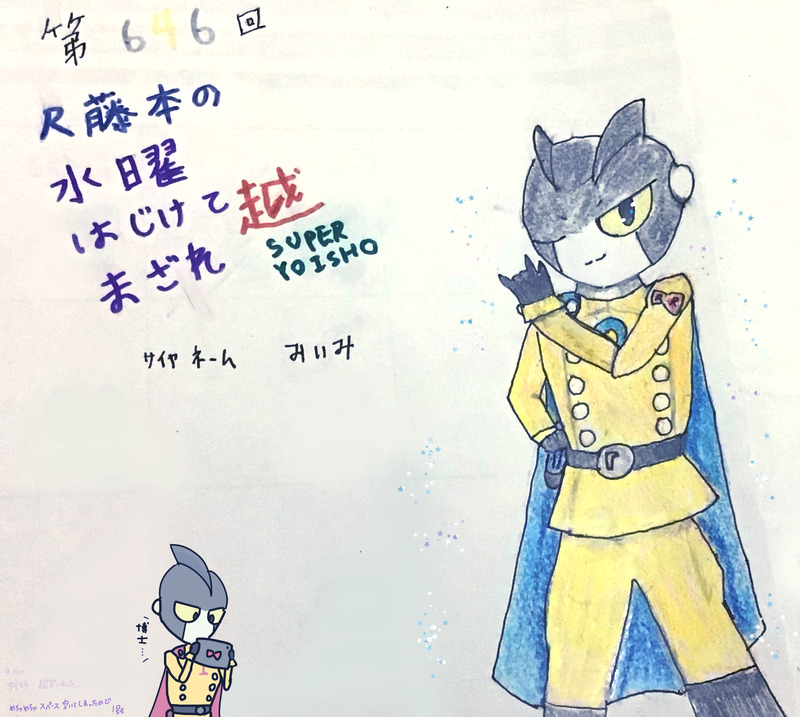 第646回
R藤本の
水曜
はじけて越
まざれ
SUPER
YOISHO
サイヤネーム みいみ
博士…
めちゃめちゃスペース空いてしまったので